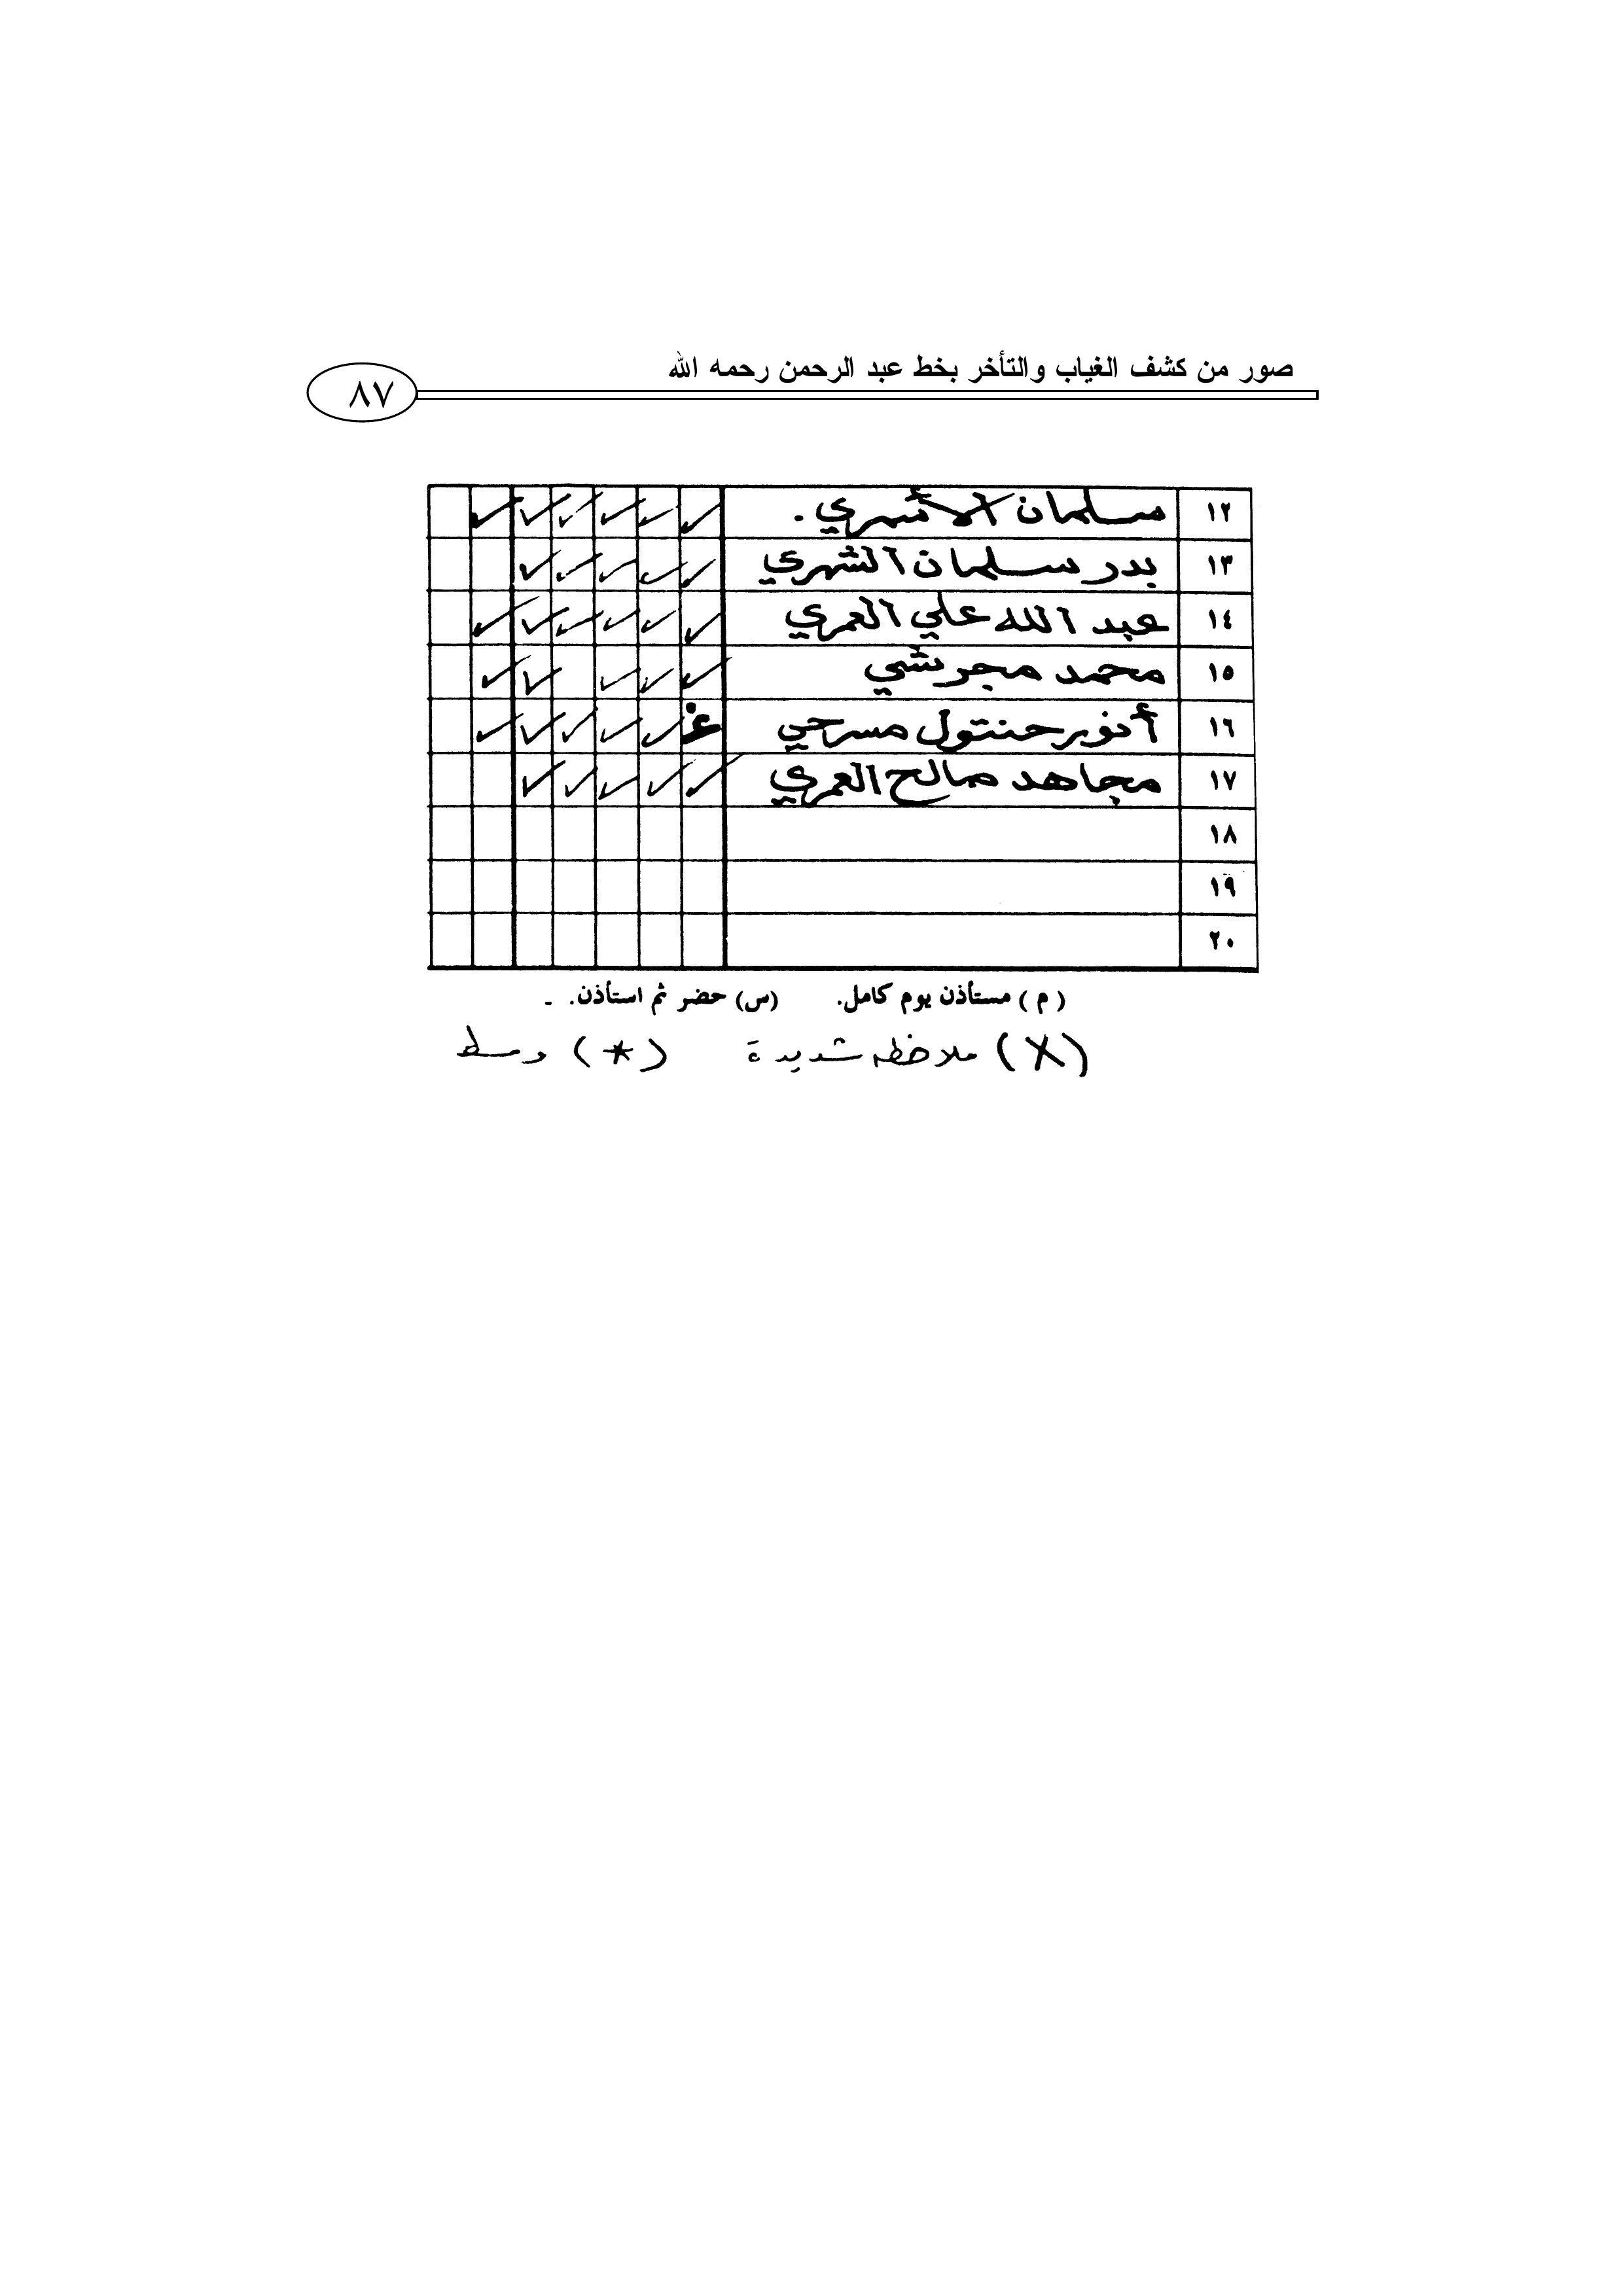 صور من كشف الغياب والتأخر بخط عبد الرحمن رحمه الله
٨٧
١٢ سلمان الأسمري . ✓ ✓ ✓ ✓ ✓ ✓
١٣ بدر سلمان الشهري ✓ ✓ ✓ ✓ ✓
١٤ عبد الله علي العمري ✓ ✓ ✓ ✓ ✓ ✓
١٥ محمد مجرشي ✓ ✓ ✓ ✓ ✓
١٦ حنتول مسرحي غ ✓ ✓ ✓ ✓ ✓
١٧ مجاهد صالح العمري ✓ ✓ ✓ ✓ ✓
١٨
١٩
٢٠
( م ) مستأذن يوم كامل. (س) حضر ثم استأذن. -
(X) ملاحظه شديدة (*) وسط